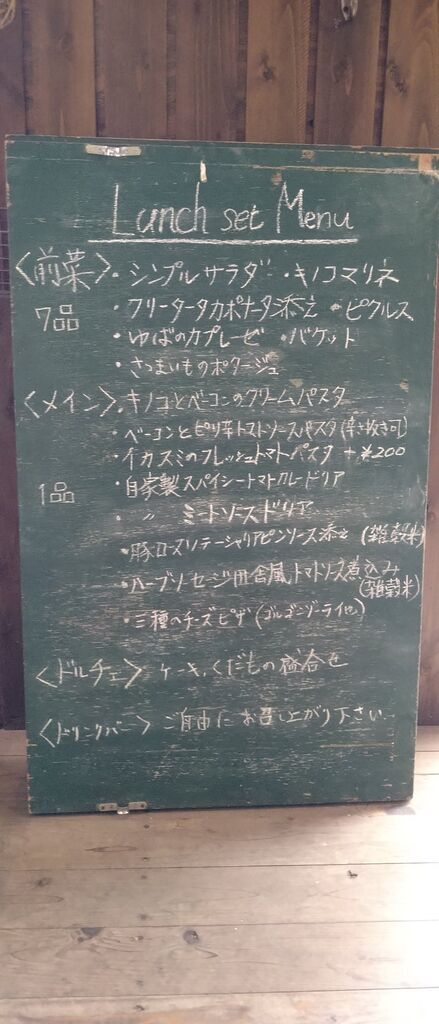 Lunch set Menu
〈前菜〉・シンプルサラダ ・キノコマリネ
7品 ・フリータータカポナータ添え ・ピクルス
・ゆばのカプレーゼ ・バケット
・さつまいものポタージュ
〈メイン〉・キノコとベーコンのクリームパスタ
・ベーコンとピリ辛トマトソースパスタ(辛さ抜き可)
・イカスミのフレッシュトマトパスタ +¥200
1品 ・自家製スパイシートマトカレードリア
・ 〃 ミートソースドリア
・豚ロースソテーシャリアピンソース添え (雑穀米)
・ハーブソーセージ田舎風トマトソース煮込み
(雑穀米)
・三種のチーズピザ(ゴルゴンゾーラ他)
〈ドルチェ〉 ケーキ、くだもの盛合せ
〈ドリンクバー〉 ご自由にお召し上がり下さい